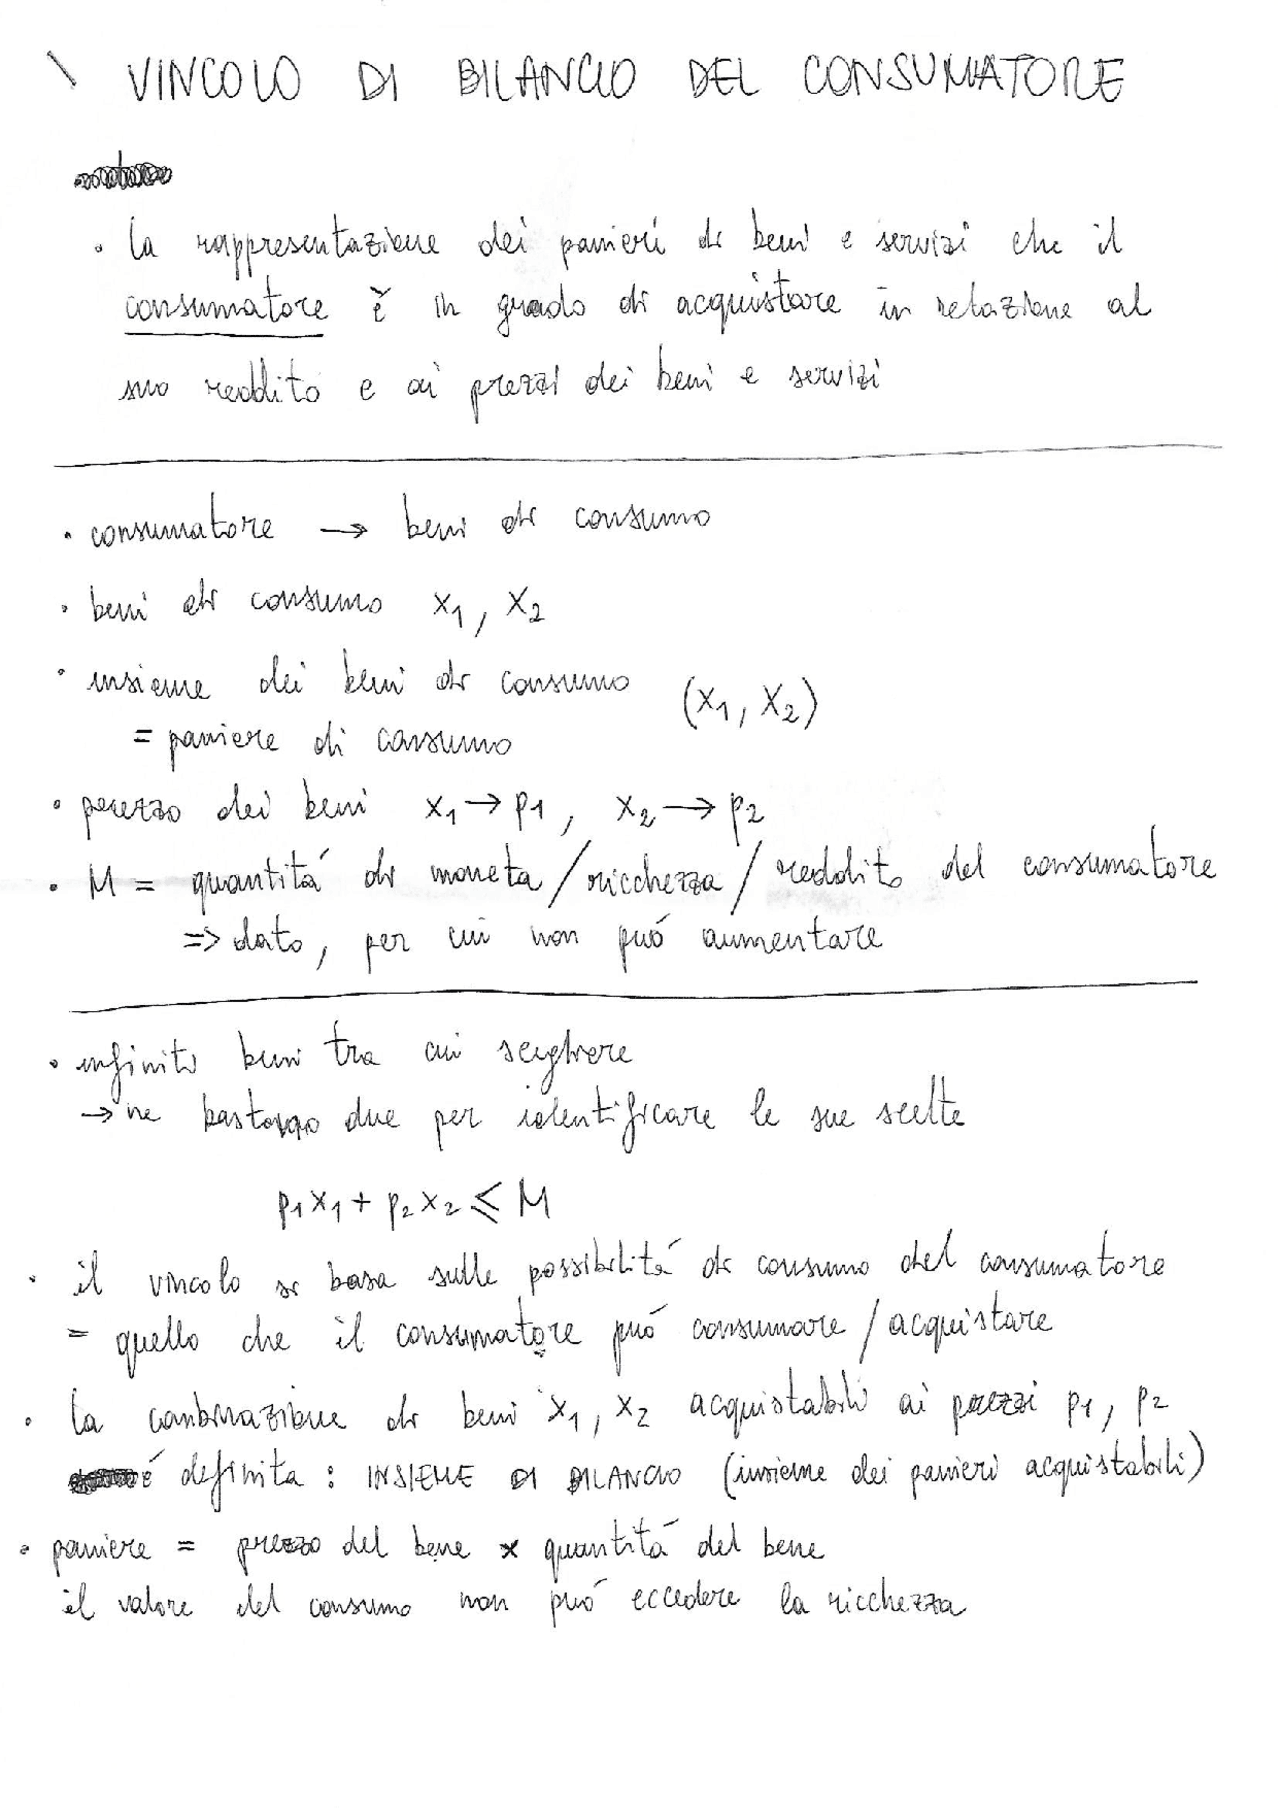 VINCOLO DI BILANCIO DEL CONSUMATORE
• la rappresentazione dei panieri di beni e servizi che il
consumatore è in grado di acquistare in relazione al
suo reddito e ai prezzi dei beni e servizi
• consumatore → beni di consumo
• beni di consumo x1, x2
• insieme dei beni di consumo (x1, x2)
= paniere di consumo
• prezzo dei beni x1 → p1, x2 → p2
• M = quantitá di moneta / ricchezza / reddito del consumatore
=> dato, per cui non puó aumentare
• infiniti beni tra cui scegliere
→ ne bastano due per identificare le sue scelte
p1x1 + p2x2 ⩽ M
• il vincolo si basa sulle possibilitá di consumo del consumatore
= quello che il consumatore puó consumare / acquistare
• la combinazione di beni x1, x2 acquistabili ai prezzi p1, p2
é definita : INSIEME DI BILANCIO (insieme dei panieri acquistabili)
• paniere = prezzo del bene × quantitá del bene
il valore del consumo non puó eccedere la ricchezza